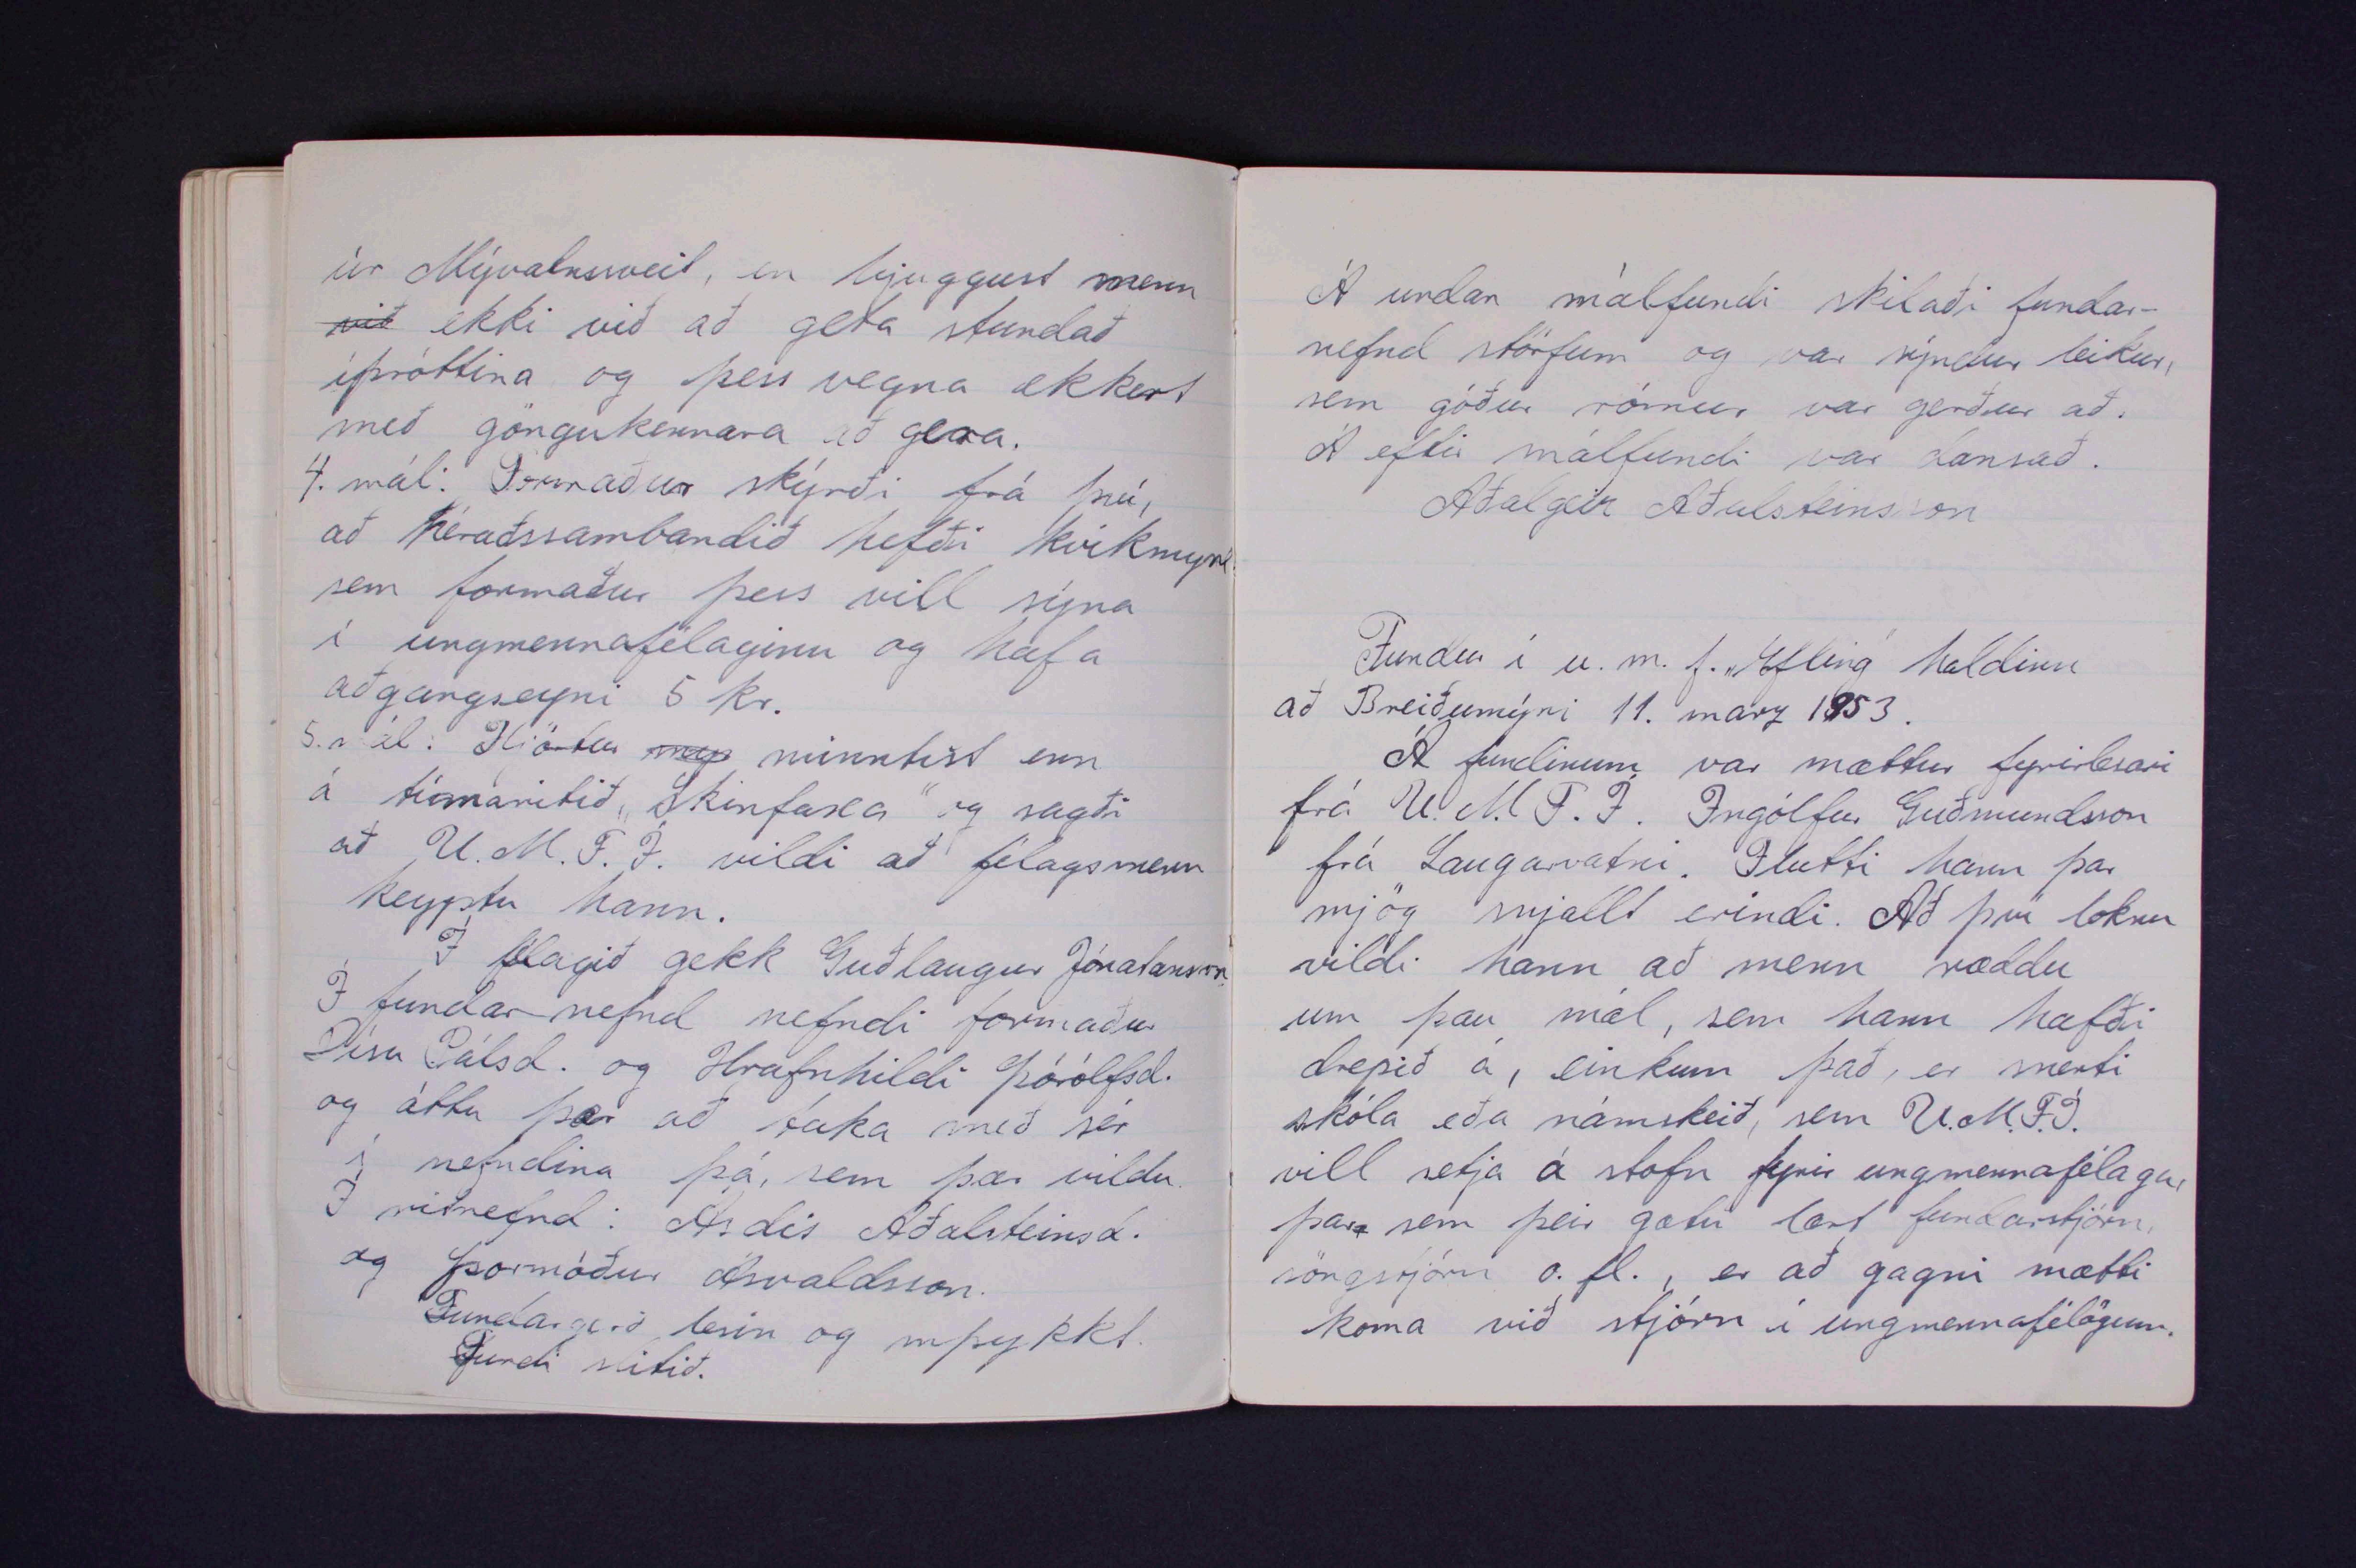 úr Mývatnssveit, en bjuggust menn
við ekki við að geta stundað
íþróttina og þess vegna ekkert
með göngukennara að gera.
4. mál: Formaður skýrði frá því,
að héraðssambandið hefði kvikmynd
sem formaður þess vill sýna
í ungmennafélaginu og hafa
aðgangseyri 5 kr.
5. mál: Hjörtur minntist enn
á tímaritið „Skinfaxa" og sagði
að U.M.F.Í. vildi að félagsmenn
keyptu hann.
Í félagið gekk Guðlaugur Jónatansson.
Í fundar-nefnd nefndi formaður
Dísu Pálsd. og Hrafnhildi Þórólfsd.
og áttu þær að taka með sér
í nefndina þá, sem þær vildu.
Í ritnefnd: Ásdís Aðalsteinsd.
og Þormóður Ásvaldsson.
Fundargerð lesin og samþykkt.
Fundi slitið.
Á undan málfundi skilaði fundar-
nefnd störfum og var sýndur leikur,
sem góður rómur var gerður að.
Á eftir málfundi var dansað.
Aðalgeir Aðalsteinsson
Fundur í u.m.f. „Efling" haldinn
að Breiðumýri 11. marz 1953.
Á fundinum var mættur fyrirlesari
frá U.M.F.Í. Ingólfur Guðmundsson
frá Laugarvatni. Flutti hann þar
mjög snjallt erindi. Að því loknu
vildi hann að menn ræddu
um þau mál, sem hann hafði
drepið á, einkum það, er snerti
skóla eða námskeið, sem U.M.F.Í.
vill setja á stofn fyrir ungmennafélaga,
þar sem þeir gætu lært fundarstjórn,
söngstjórn o.fl., er að gagni mætti
koma við stjórn í ungmennafélögum.